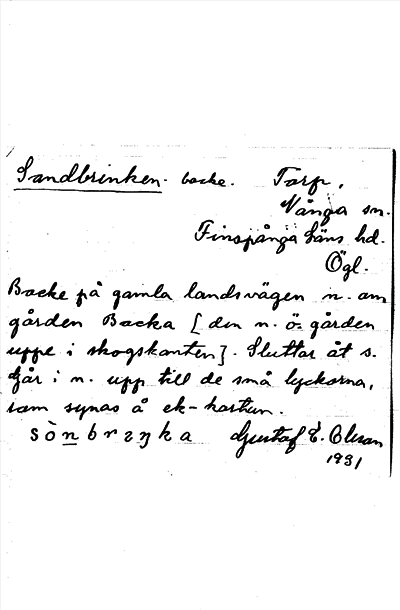 Sandbrinken. backe. Torp,
Vånga sn.
Finspånga läns hd.
Ögl.
Backe på gamla landsvägen n. om
gården Backa [den n. ö. gården
uppe i skogskanten]. Sluttar åt s.
Går i n. upp till de små lyckorna,
som synas å ek-kartan.
Gustaf E. Olsson
1931